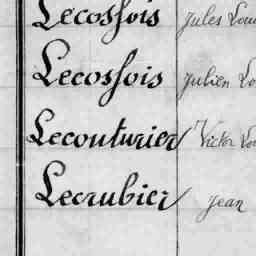 Lecossois Jules Lou
Lecossois Julien Lo
Lecouturier Victor Lou
Lecrubier Jean